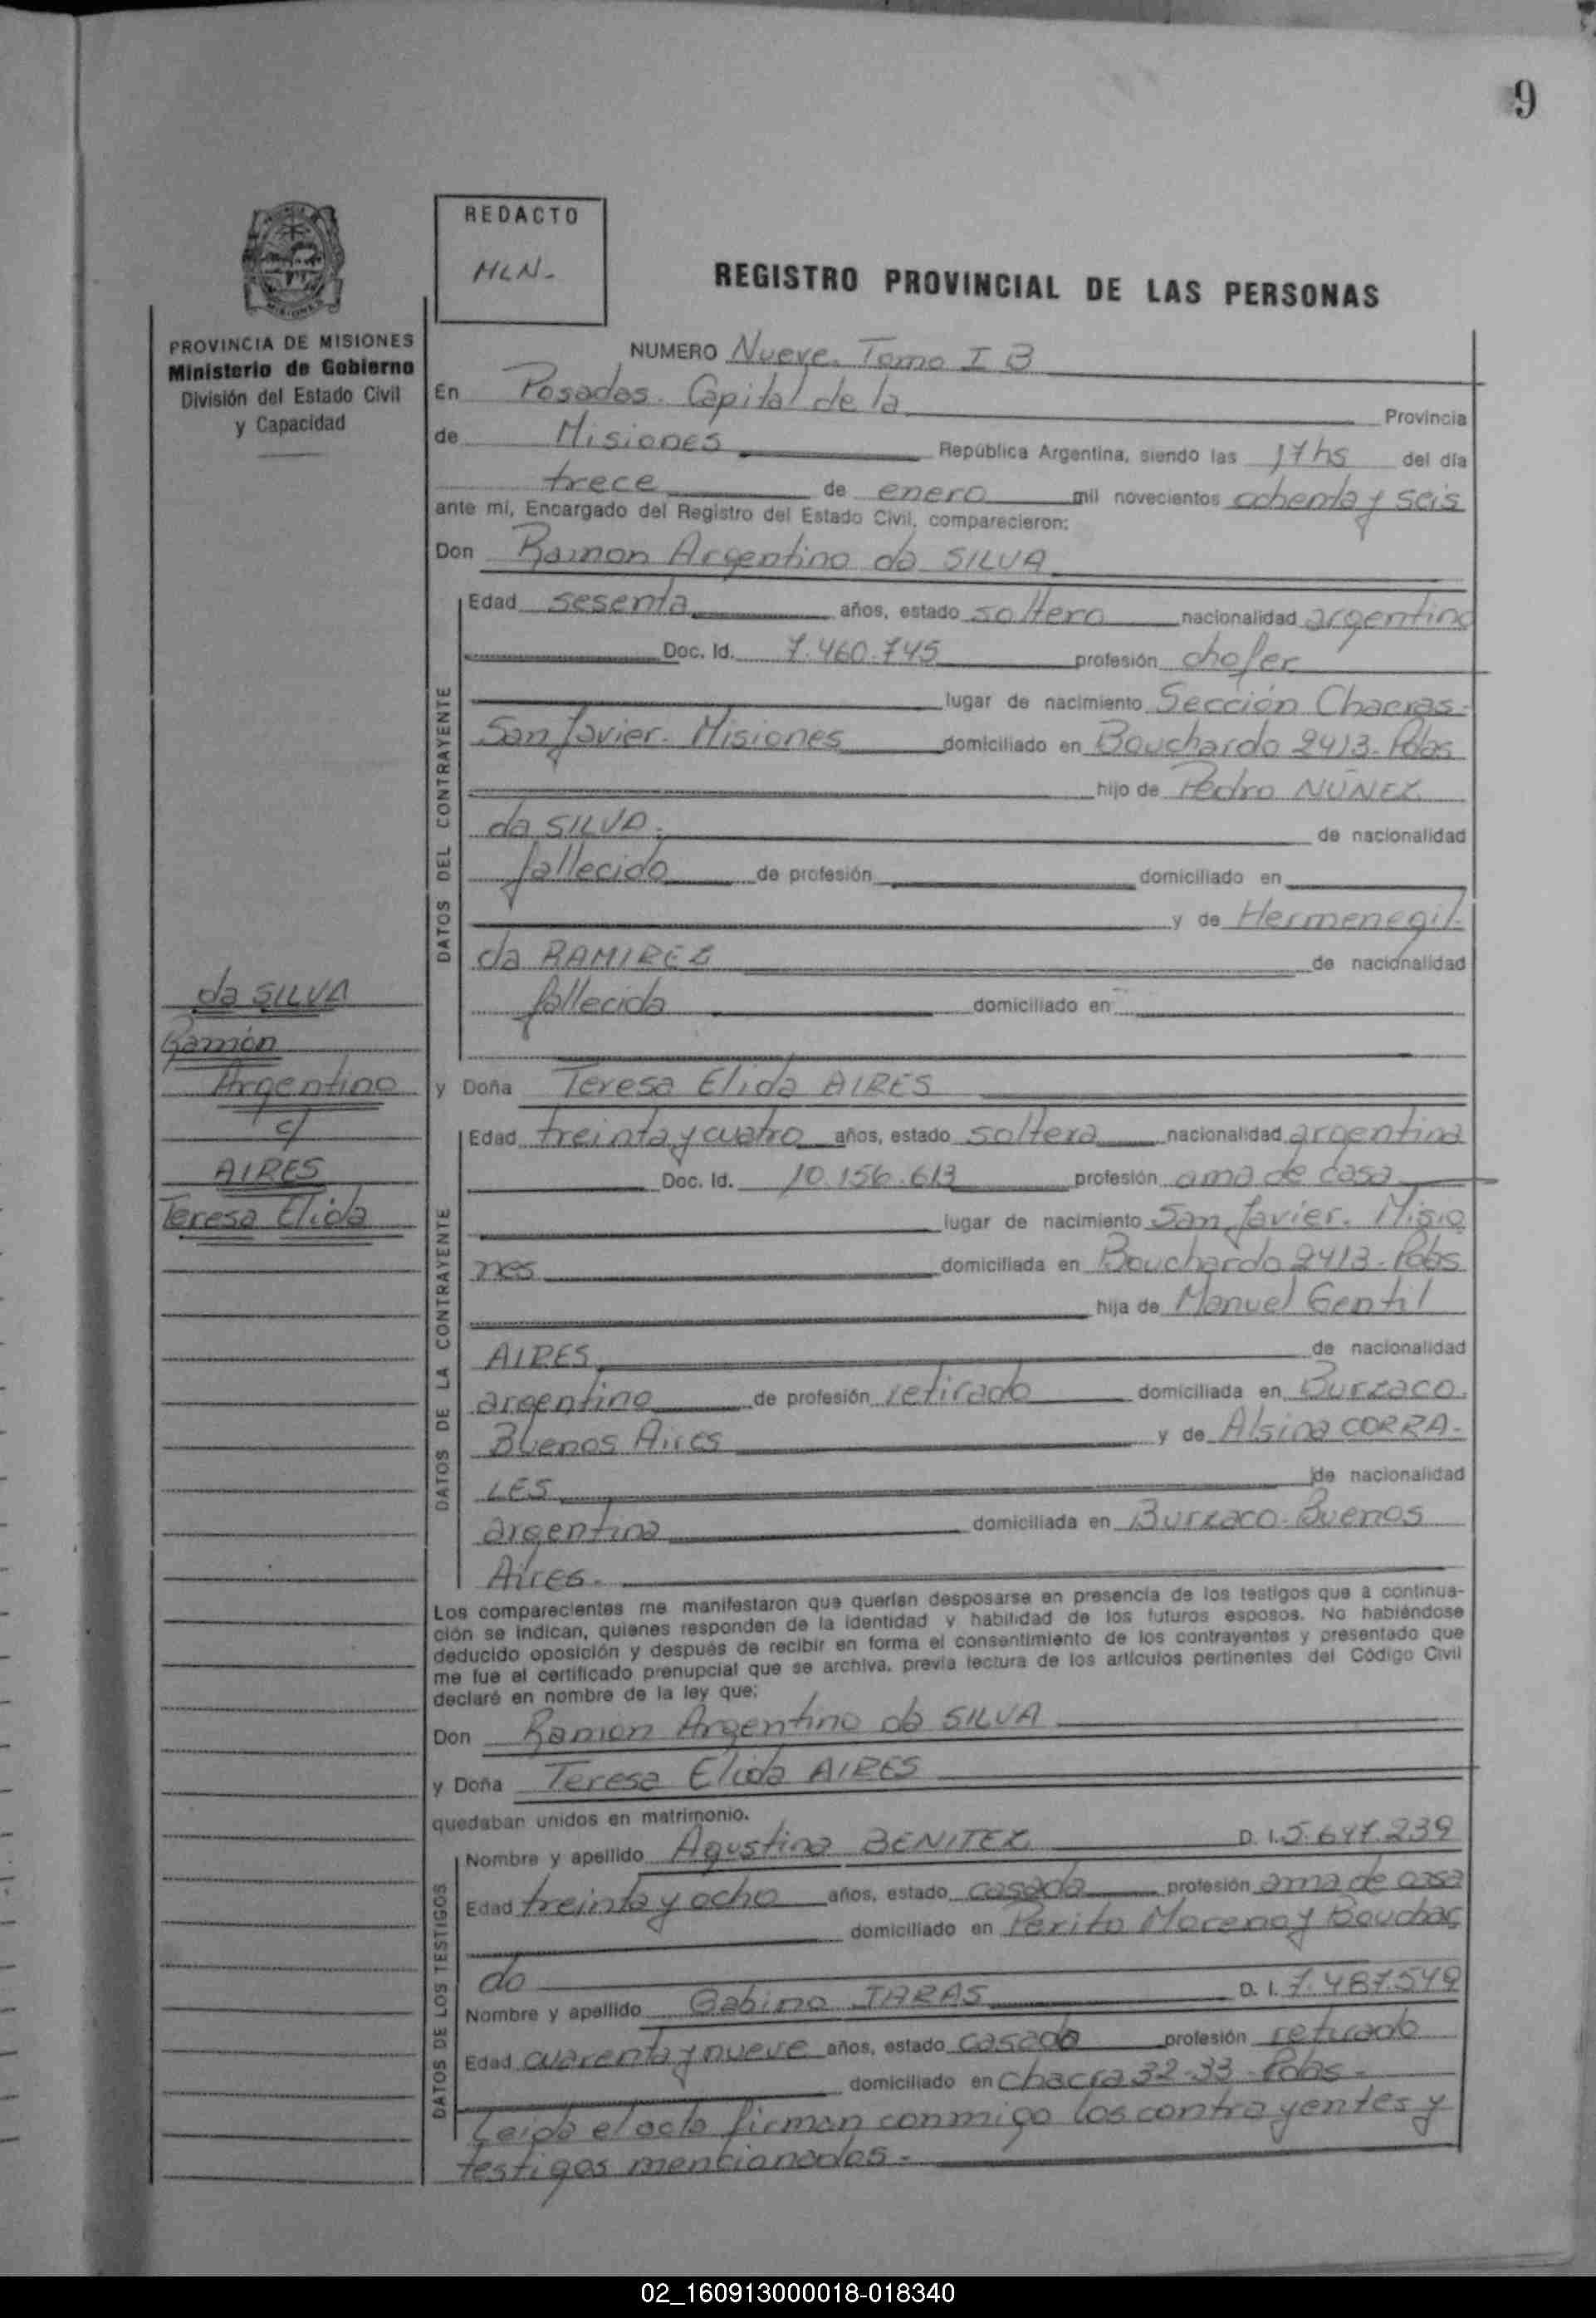 9
REDACTO
MLN-
REGISTRO PROVINCIAL DE LAS PERSONAS
PROVINCIA DE MISIONES
Ministerio de Gobierno
División del Estado Civil
y Capacidad
NUMERO Nueve. Tomo I B
En Posadas. Capital de la Provincia
de Misiones República Argentina, siendo las 17 hs del día
trece de enero mil novecientos ochenta y seis
ante mí, Encargado del Registro del Estado Civil, comparecieron:
Don Ramon Argentino da SILVA
DATOS DEL CONTRAYENTE
Edad sesenta años, estado soltero nacionalidad argentino
Doc. Id. 7.460.745 profesión chofer
lugar de nacimiento Sección Chacras-
San Javier. Misiones domiciliado en Bouchardo 2413-Pdas
hijo de Pedro NUÑEZ
da SILVA. de nacionalidad
fallecido de profesión domiciliado en
y de Hermenegil-
da RAMIREZ de nacionalidad
fallecida domiciliado en
da SILVA
Ramón
Argentino
c/
AIRES
Teresa Elida
y Doña Teresa Elida AIRES
DATOS DE LA CONTRAYENTE
Edad treinta y cuatro años, estado soltera nacionalidad argentina
Doc. Id. 10.156.613 profesión ama de casa
lugar de nacimiento San Javier. Misio
nes domiciliada en Bouchardo 2413-Pdas
hija de Manuel Gentil
AIRES de nacionalidad
argentino de profesión retirado domiciliada en Burzaco.
Buenos Aires y de Alsina CORRA-
LES de nacionalidad
argentina domiciliada en Burzaco-Buenos
Aires.
Los comparecientes me manifestaron que querían desposarse en presencia de los testigos que a continua-
ción se indican, quienes responden de la identidad y habilidad de los futuros esposos. No habiéndose
deducido oposición y después de recibir en forma el consentimiento de los contrayentes y presentado que
me fue el certificado prenupcial que se archiva, previa lectura de los artículos pertinentes del Código Civil
declaré en nombre de la ley que:
Don Ramon Argentino da SILVA
y Doña Teresa Elida AIRES
quedaban unidos en matrimonio.
DATOS DE LOS TESTIGOS
Nombre y apellido Agustina BENITEZ D. I. 5.647.239
Edad treinta y ocho años, estado casada profesión ama de casa
domiciliado en Perito Moreno y Bouchar
do
Nombre y apellido Gabino TARAS D. I. 7.487.549
Edad cuarenta y nueve años, estado casado profesión retirado
domiciliado en chacra 32-33-Pdas-
Leida el acta firman conmigo los contrayentes y
testigos mencionados.-
02_160913000018-018340